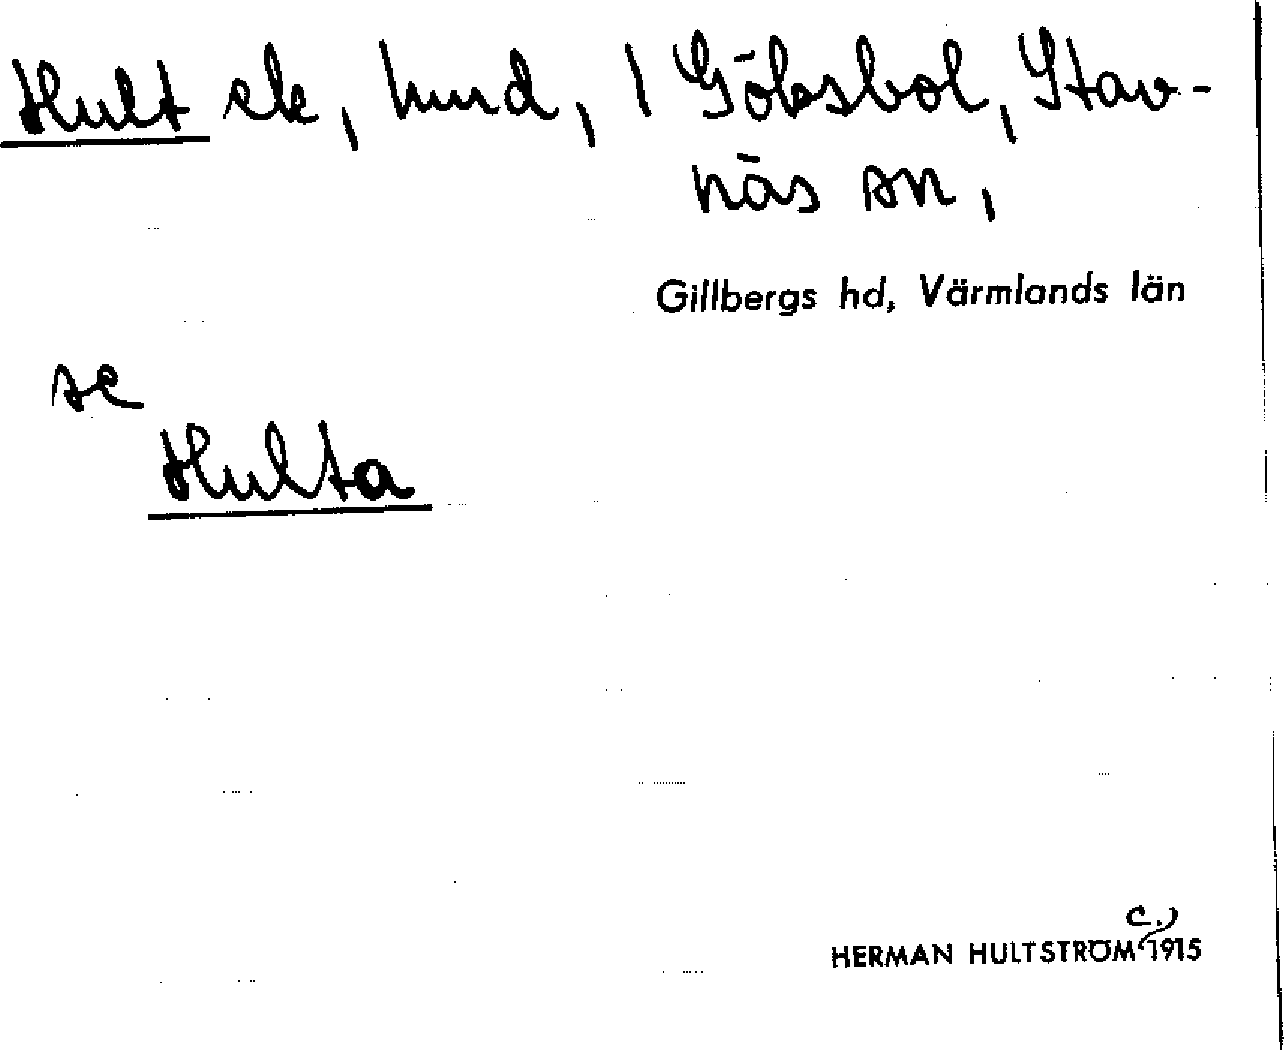 Hult ek, hmd, 1 Göksbol, Stav-
näs sn,
Gillbergs hd, Värmlands län
se
Hulta
c.)
HERMAN HULTSTRÖM 1915